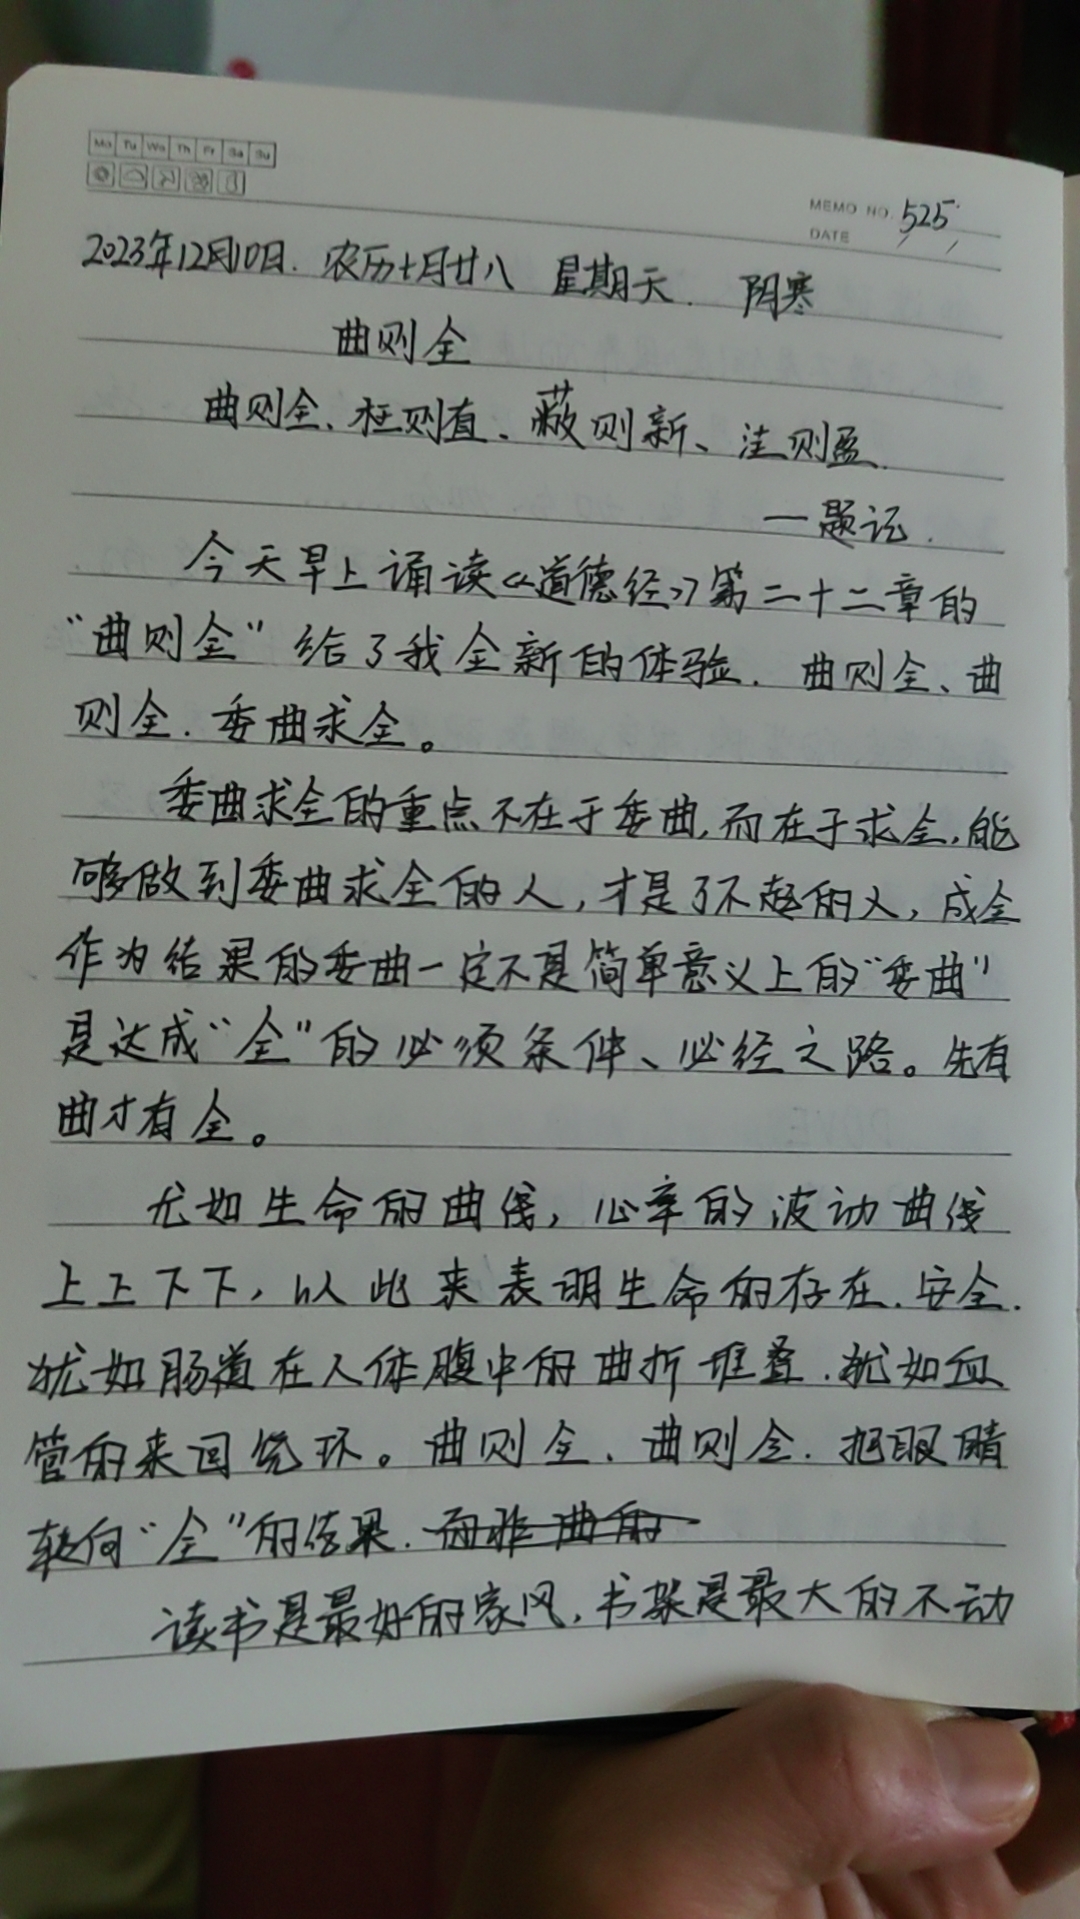 Mo Tu We Th Fr Sa Su
MEMO NO. 525
DATE
2023年12月10日. 农历十月廿八 星期天. 阴寒
曲则全
曲则全、枉则直、蔽则新、洼则盈.
—题记.
今天早上诵读《道德经》第二十二章的
“曲则全”给了我全新的体验. 曲则全、曲
则全.委曲求全。
委曲求全的重点不在于委曲,而在于求全,能
够做到委曲求全的人,才是了不起的人,成全
作为结果的委曲一定不是简单意义上的“委曲”
是达成“全”的必须条件、必经之路。先有
曲才有全。
尤如生命的曲线,心率的波动曲线
上上下下,以此来表明生命的存在.安全.
犹如肠道在人体腹中的曲折堆叠.犹如血
管的来回绕环。曲则全.曲则全.把眼睛
转向“全”的结果.而非曲的
读书是最好的家风,书架是最大的不动